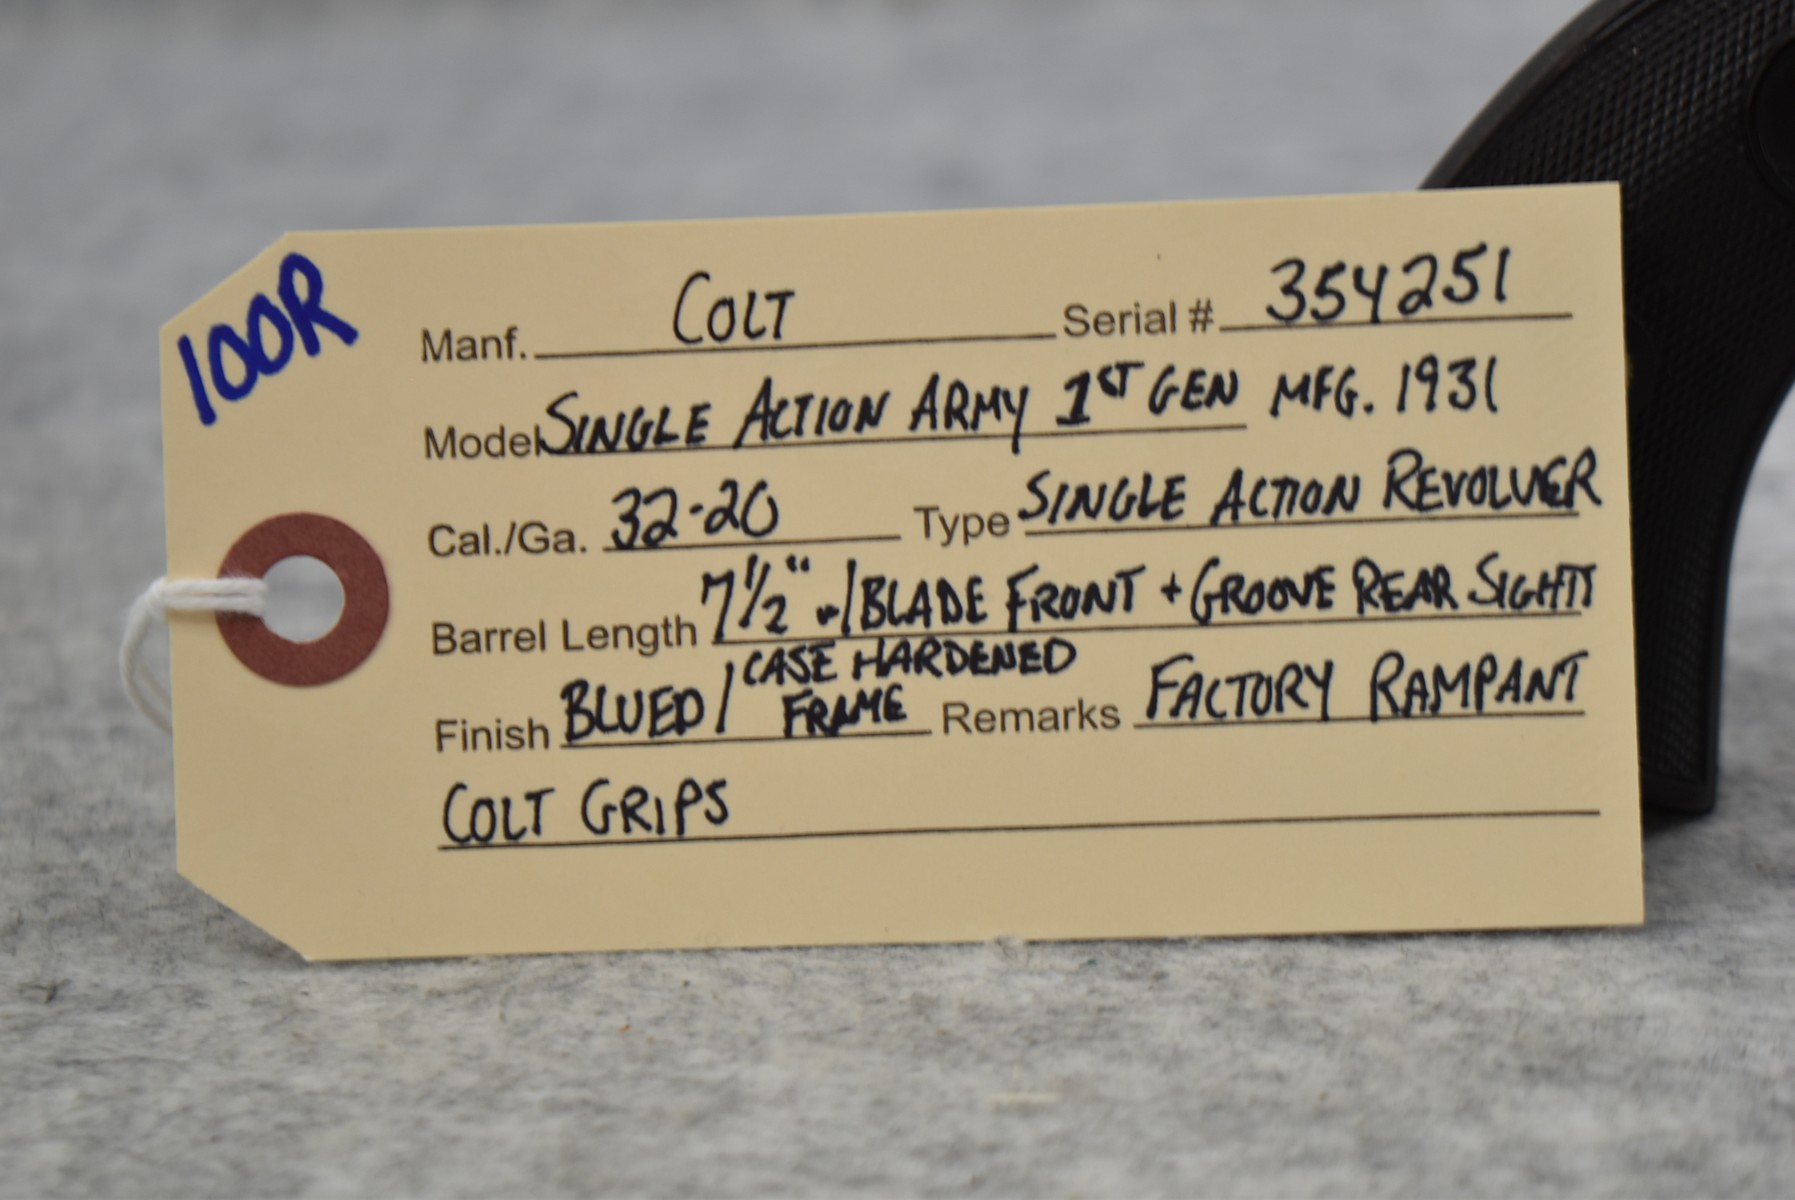 100R
Manf. COLT Serial # 354251
Model SINGLE ACTION ARMY 1ST GEN MFG. 1931
Cal./Ga. 32-20 Type SINGLE ACTION REVOLVER
Barrel Length 7 1/2" w/BLADE FRONT + GROOVE REAR SIGHTS
Finish BLUED / CASE HARDENED FRAME Remarks FACTORY RAMPANT
COLT GRIPS